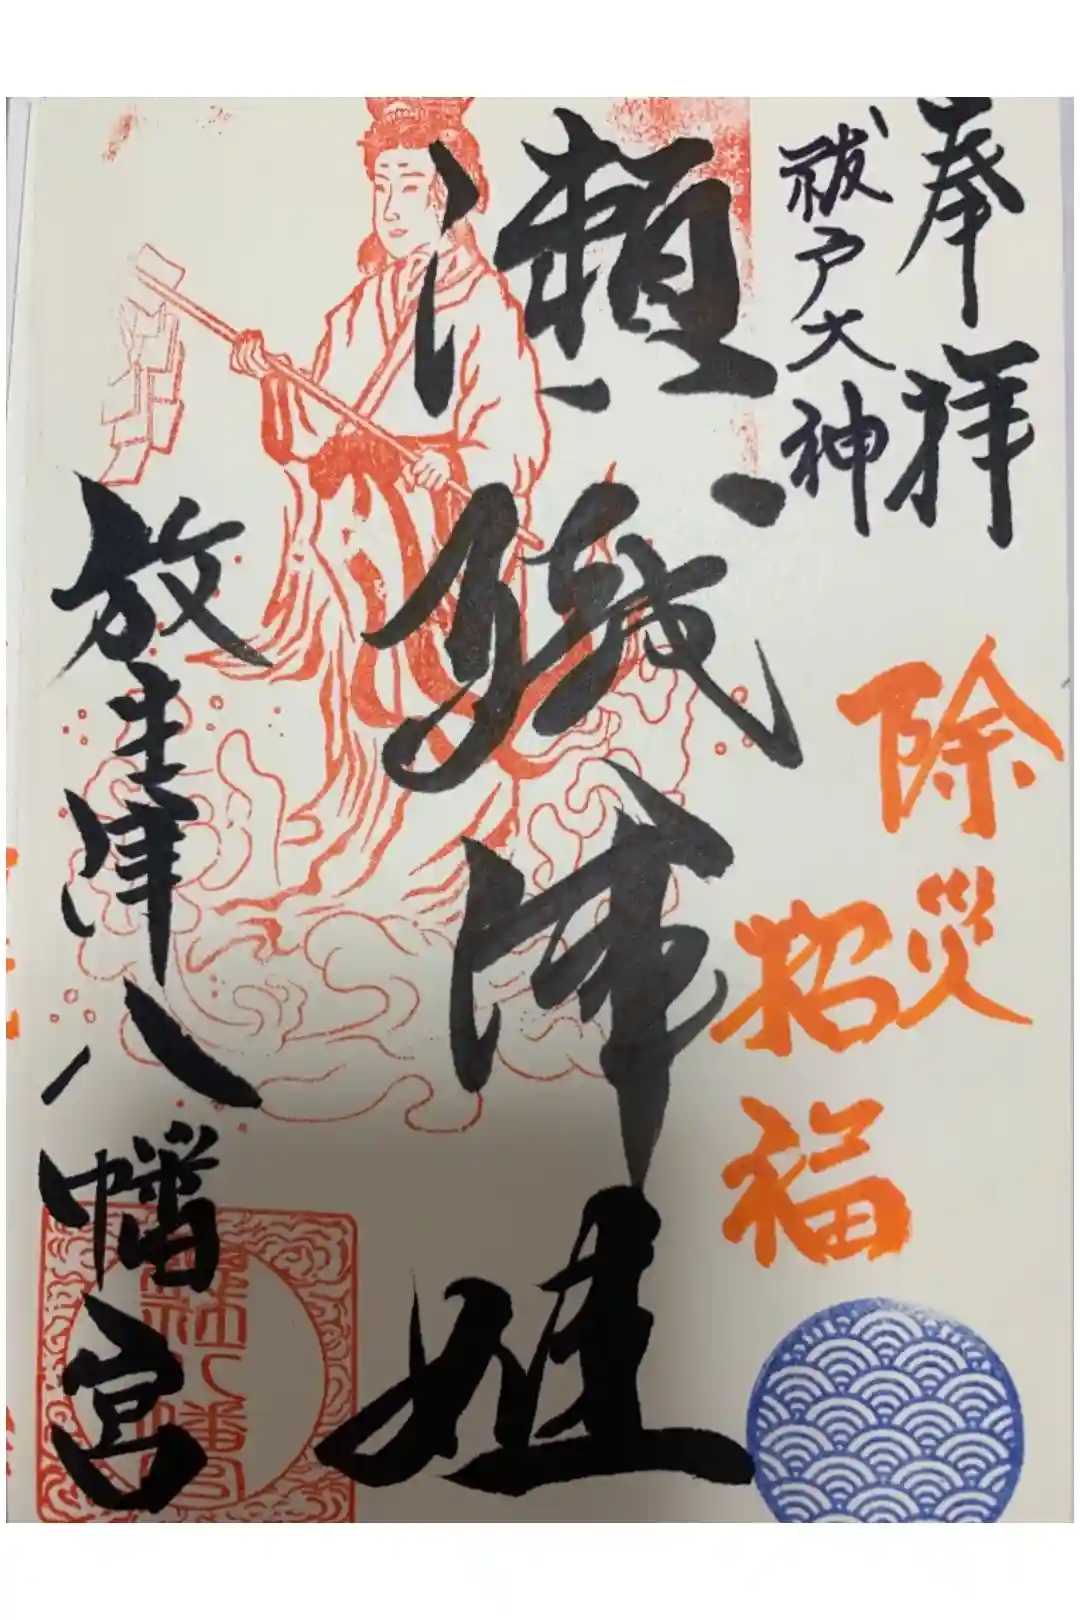 奉拝
祓戸大神
除災
招福
瀬織津姫
放生津八幡宮